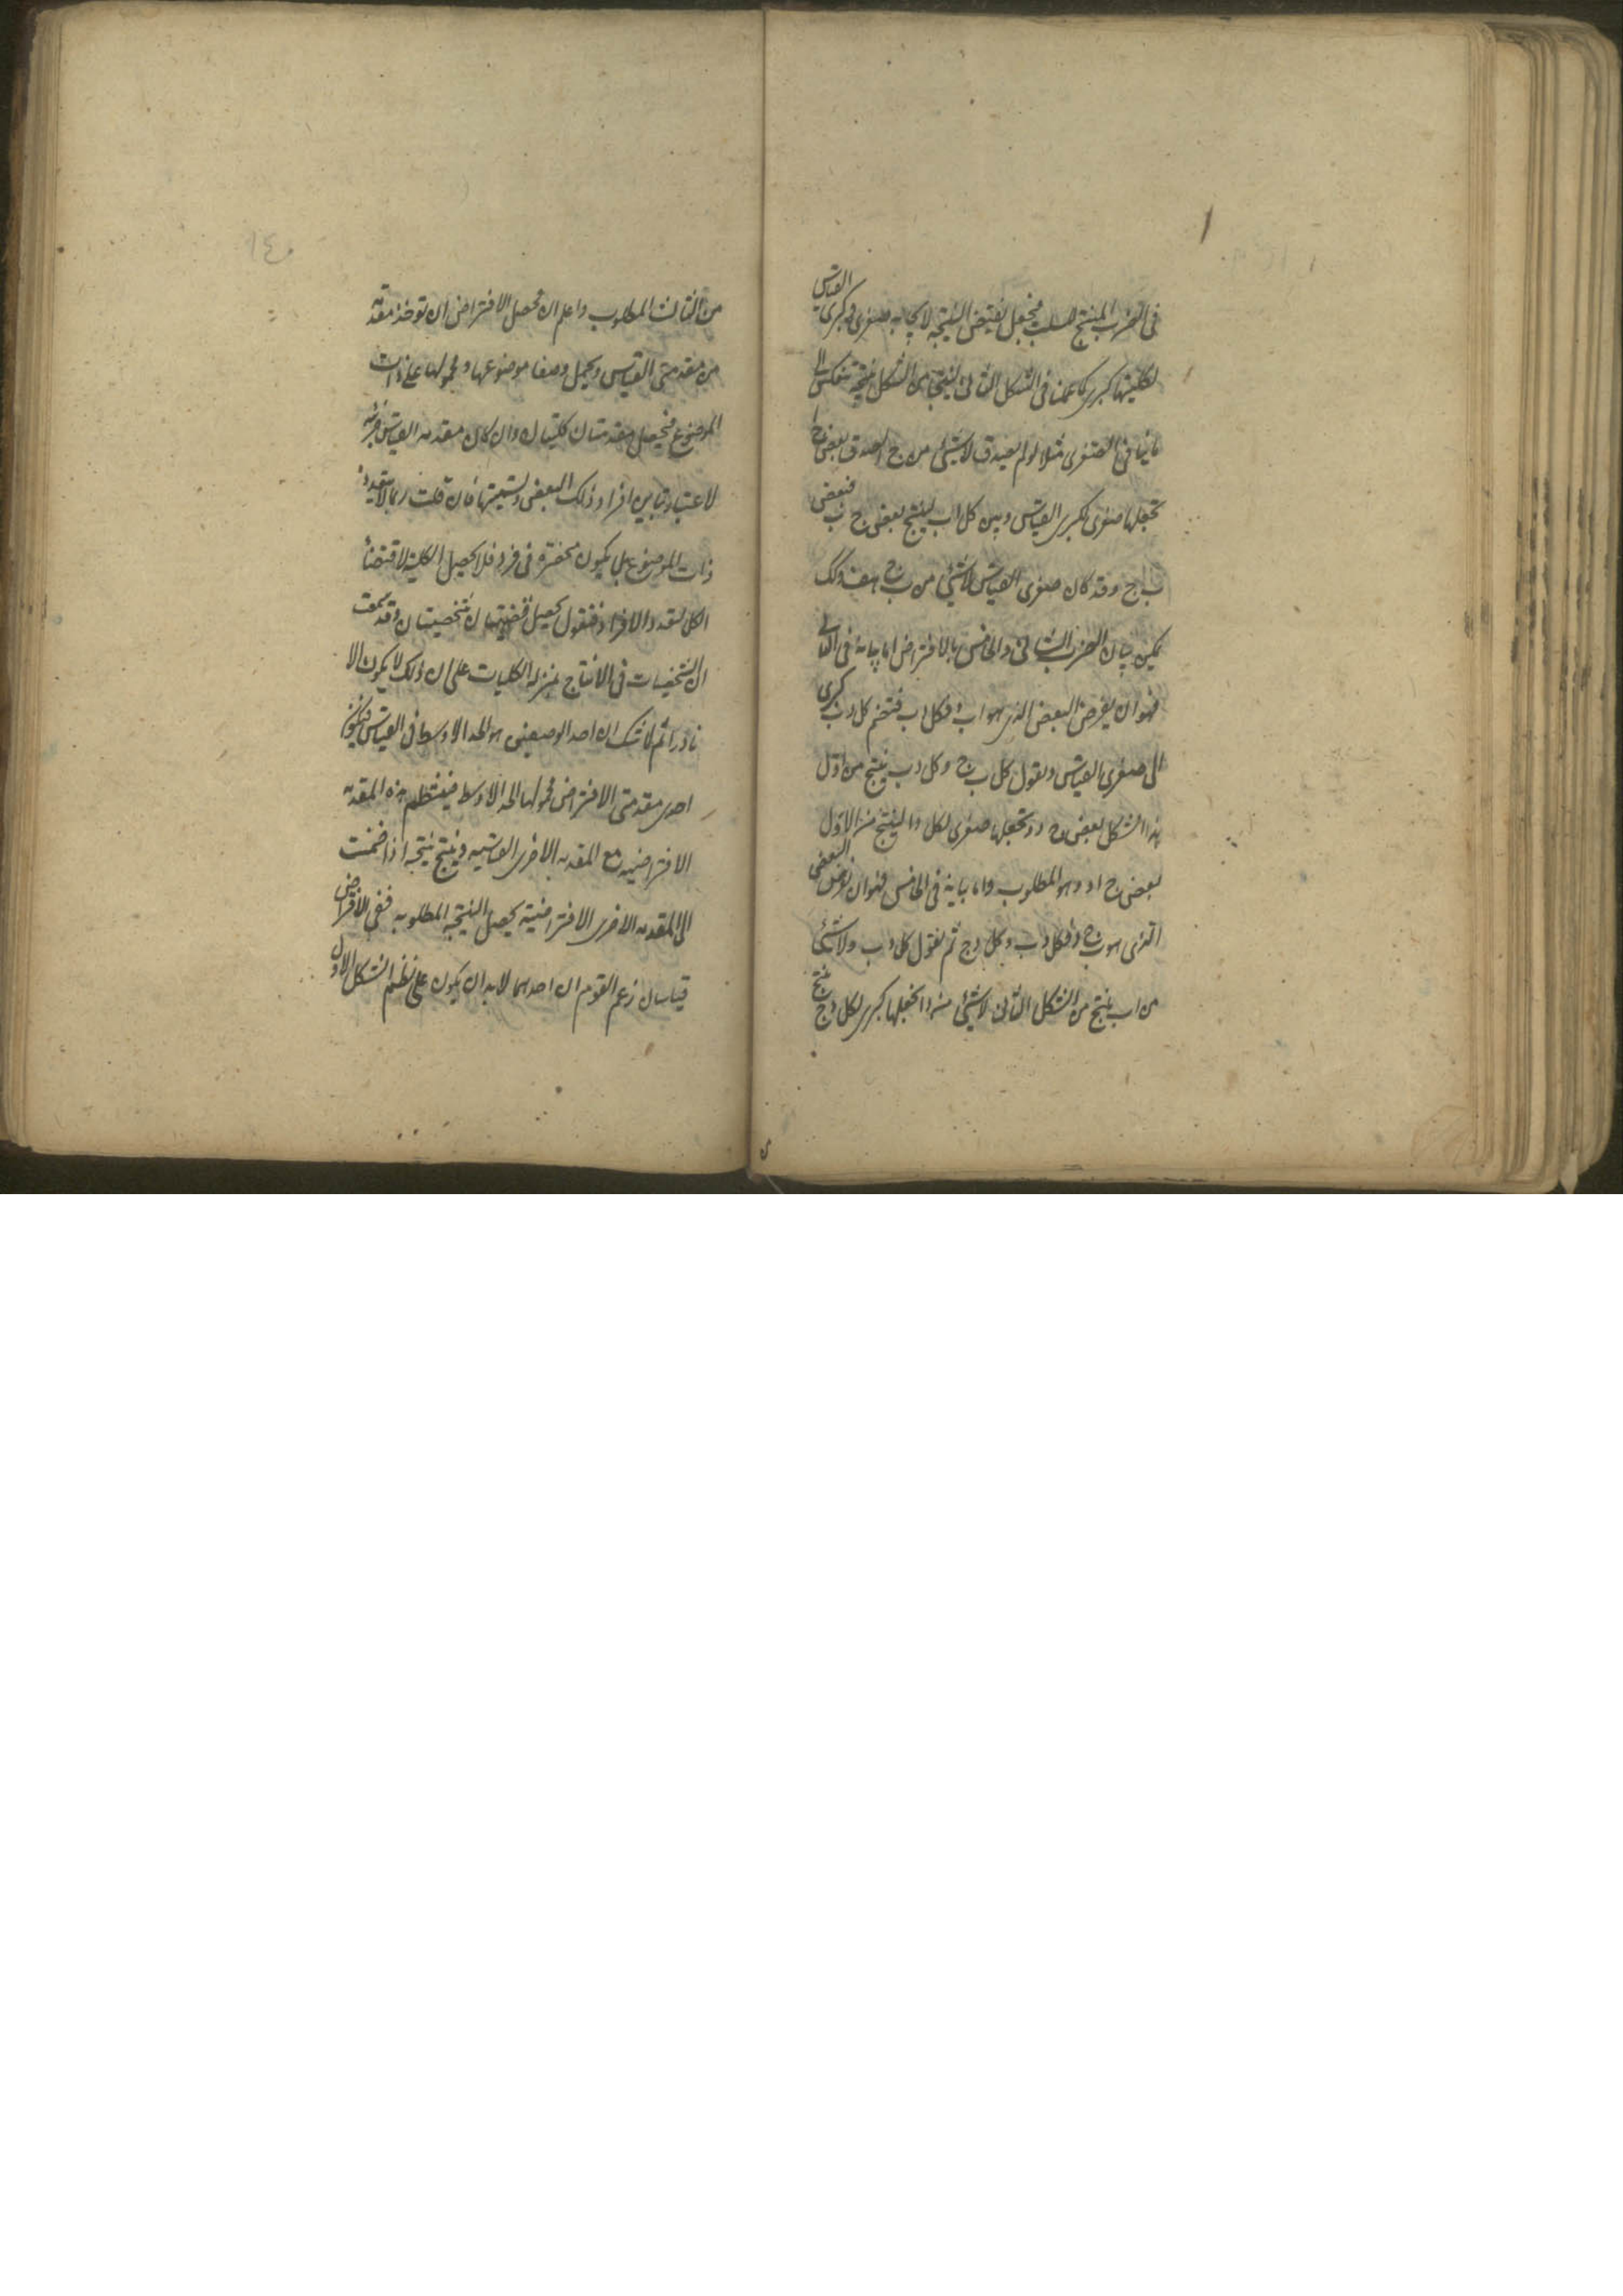 فى الضرب المنتج للسلب فيجعل نقيض النتيجة لايجابه صغرى وكبرى القياس
لكليتها كبرى كما عملنا فى الشكل الثانى لينتج من الشكل نتيجة تنعكس الى
ما ينافى الصغرى مثلا لو لم يصدق لا شىء من ج ا لصدق بعض ج ا
نجعلها صغرى لكبرى القياس وهى كل ا ب لينتج بعض ج ب فبعض
ب ج وقد كان صغرى القياس لا شىء من ب ج هف وكك
يمكن بيان الضرب الثانى والخامس بالافتراض اما بيانه فى الثانى
فهو ان يفرض البعض الذى هو ا ب د فكل د ب فنضم كل د ب كبرى
الى صغرى القياس ونقول كل ب ج وكل د ب ينتج من اول
هذا الشكل بعض ج د ونجعلها صغرى لكل د ا لينتج من الاول
بعض ج ا وهو المطلوب واما بيانه فى الخامس فهو ان نفرض البعض
الذى هو ب ج د فكل د ب وكل د ج ثم نقول كل د ب ولا شىء
من ا ب ينتج من الشكل الثانى لا شىء من د ا نجعلها كبرى لكل د ج ينتج
من الثالث المطلوب واعلم ان محصل الافتراض ان توخذ مقدمة
من مقدمتى القياس ويحمل وصفا موضوعها ومحمولها على ذات
الموضوع فيحصل مقدمتان كليتان وان كان مقدمة القياس جزئية
لاعتبار تباين افراد ذلك البعض وتسميتها فان قلت ربما لا يتعدد
ذات الموضوع بل يكون منحصرة فى فرد فلا يحصل الكلية لاقتضاء
الكل تعدد الافراد فنقول يحصل قضيتان شخصيتان وقد سمعت
ان الشخصيات فى الانتاج بمنزلة الكليات على ان ذلك لا يكون الا
نادرا ثم لا شك ان احد الوصفين هو الحد الاوسط فى القياس فيكون
احدى مقدمتى الافتراض محمولها الحد الاوسط فينتظم هذه المقدمة
الافتراضية مع المقدمة الاخرى القياسية وينتج نتيجة اذا ضمت
الى المقدمة الاخرى الافتراضية يحصل النتيجة المطلوبة ففى الافتراض
قياسان زعم القوم ان احدهما لا بد ان يكون على نظم الشكل الاول